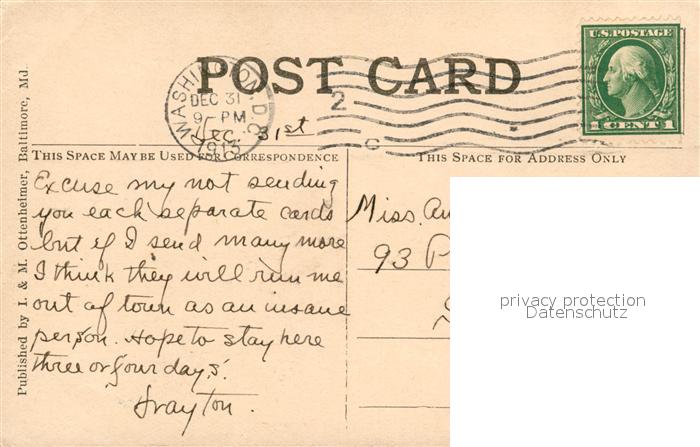 POST CARD
U.S. POSTAGE
1 CENT 1
WASHINGTON, D.C.
DEC 31
9 - PM
1913
2
C
Dec. 31st
THIS SPACE MAY BE USED FOR CORRESPONDENCE
THIS SPACE FOR ADDRESS ONLY
Published by I. & M. Ottenheimer, Baltimore, Md.
Excuse my not sending
you each separate cards
but if I send many more
I think they will run me
out of town as an insane
person. Hope to stay here
three or four days.
Drayton.
Miss. An
93 P
privacy protection
Datenschutz